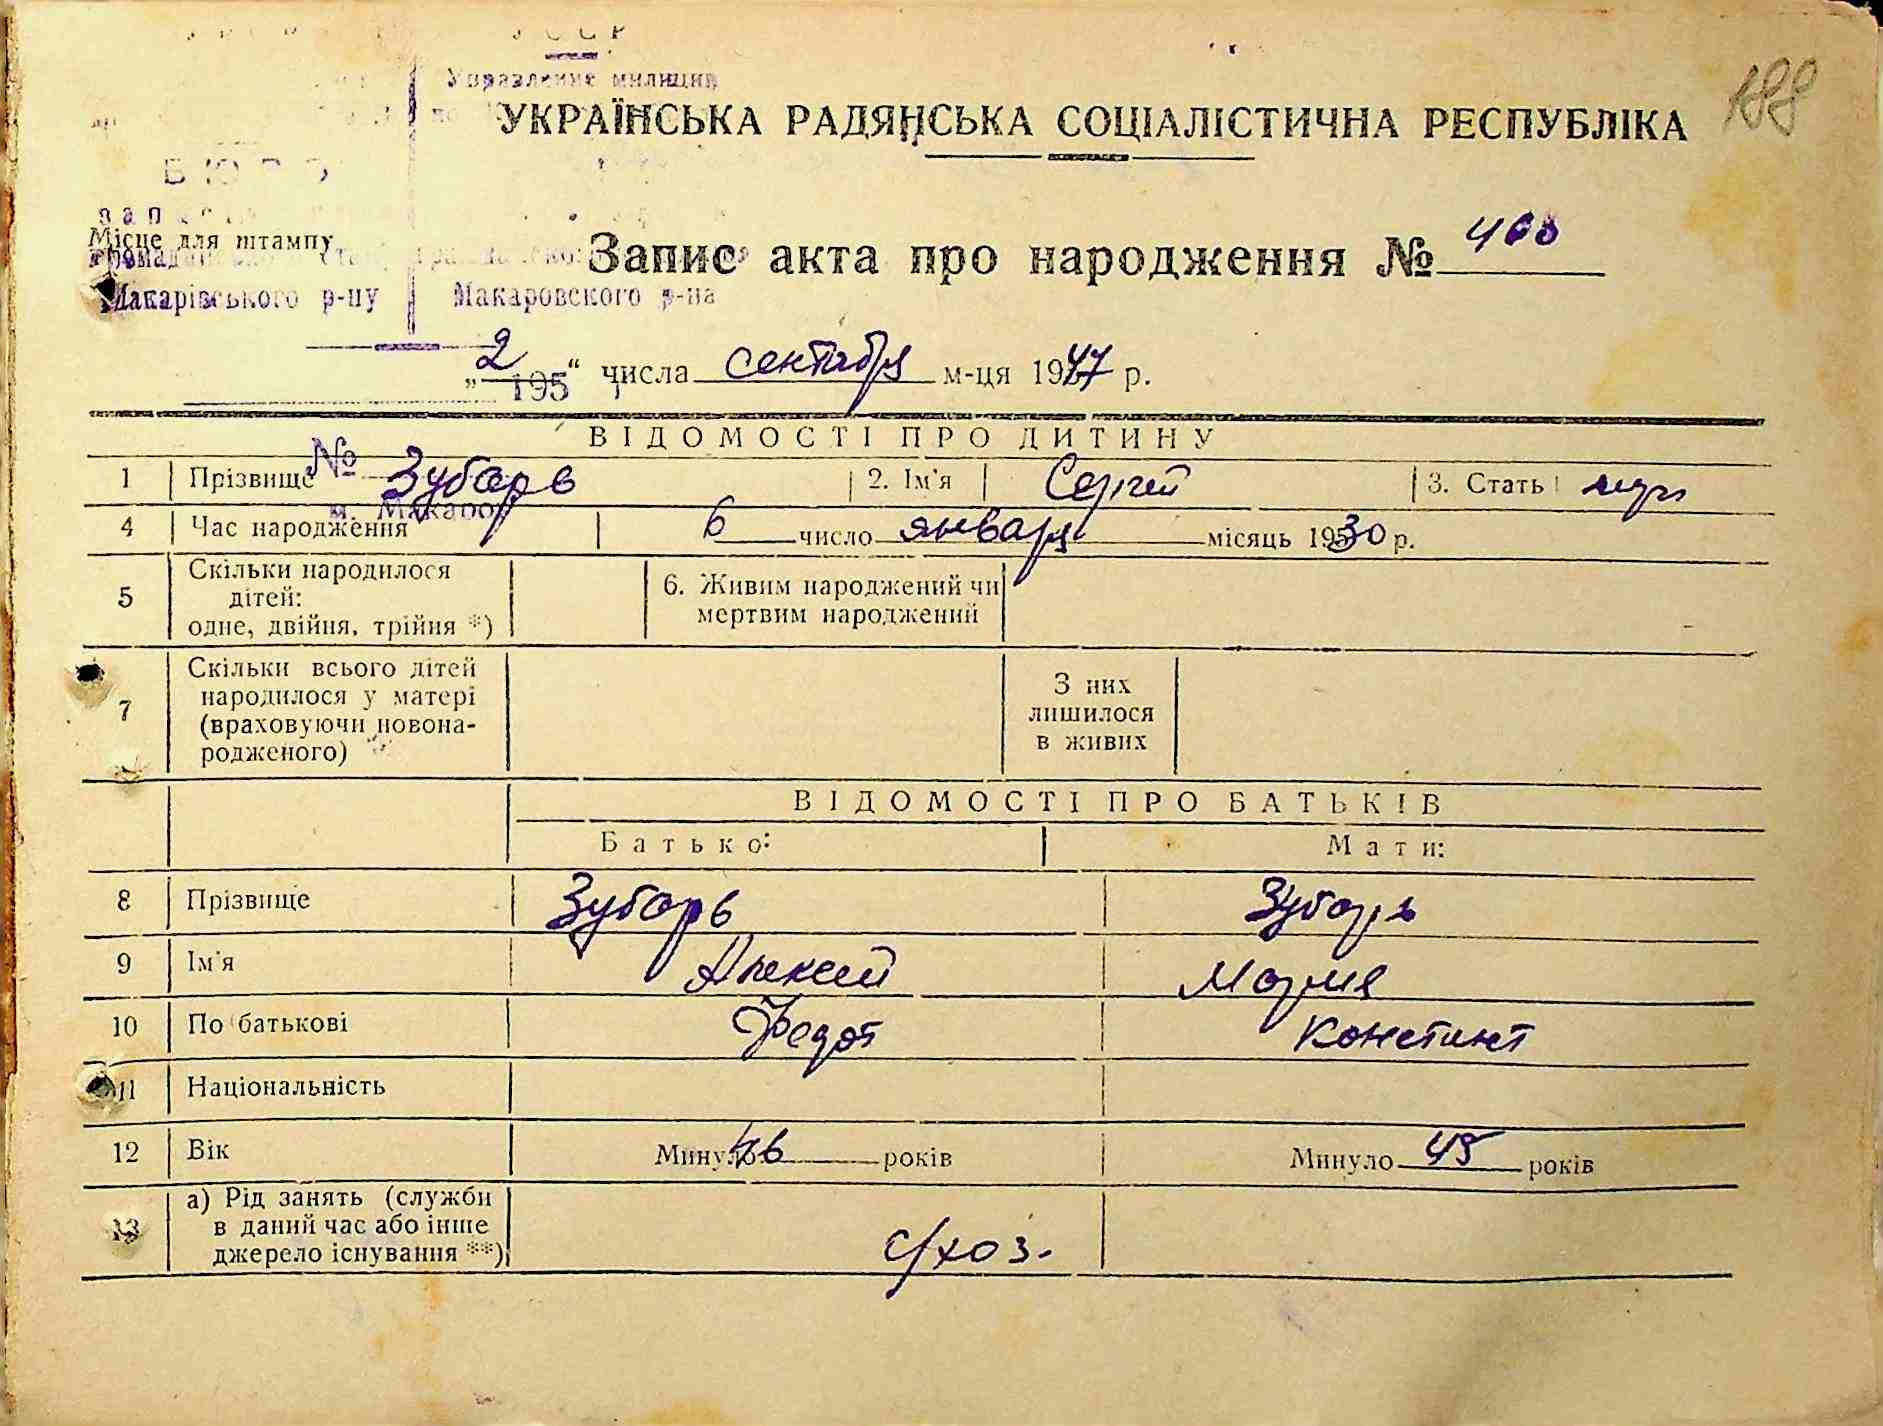 УССР
Управление милиции
188
УКРАЇНСЬКА РАДЯНСЬКА СОЦІАЛІСТИЧНА РЕСПУБЛІКА
БЮРО
Місце для штампу
Запис акта про народження №
Макарівського р-ну Макаровского р-на
„2“ числа сентября м-ця 1947 р.
195
ВІДОМОСТІ ПРО ДИТИНУ
№
1 Прізвище Зубарь 2. Ім'я Сергей 3. Стать муж
м. Макаров
4 Час народження 6 число января місяць 1930 р.
5 Скільки народилося
дітей:
одне, двійня, трійня *)
6. Живим народжений чи
мертвим народжений
7 Скільки всього дітей
народилося у матері
(враховуючи новона-
родженого)
З них
лишилося
в живих
ВІДОМОСТІ ПРО БАТЬКІВ
Батько: Мати:
8 Прізвище Зубарь Зубарь
9 Ім'я Алексей Мария
10 По батькові Федот Констант
11 Національність
12 Вік Минуло 46 років Минуло 45 років
13 а) Рід занять (служби
в даний час або інше
джерело існування **)
с/хоз.